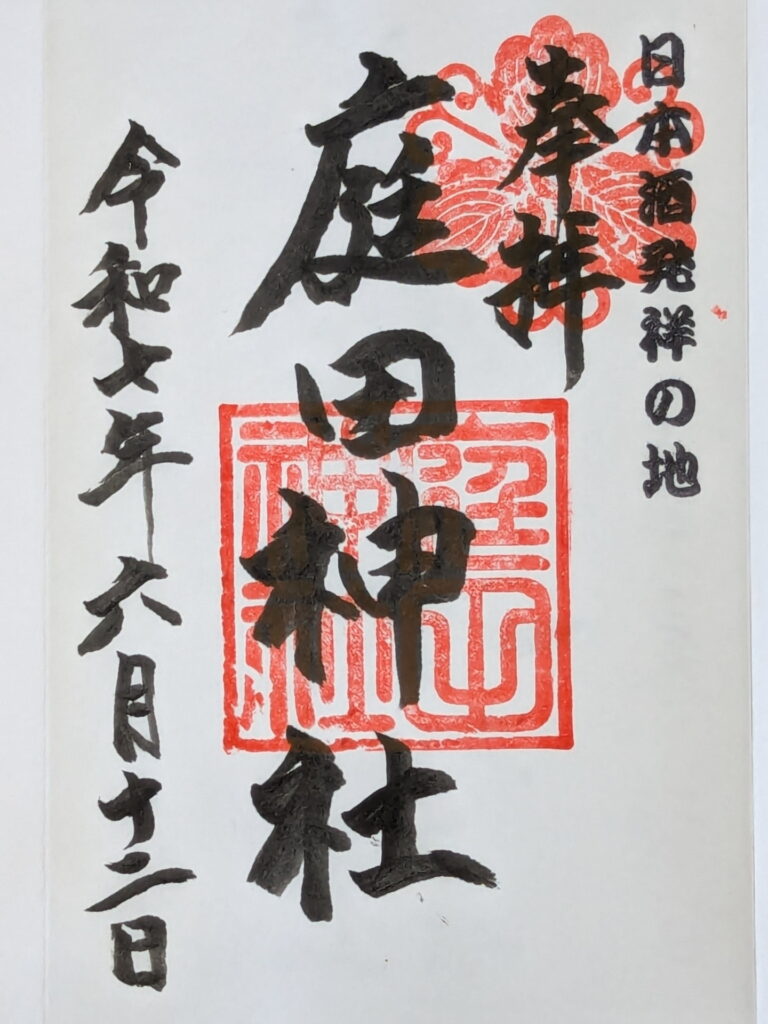 日本酒発祥の地
奉拝
庭田神社
令和七年六月十二日